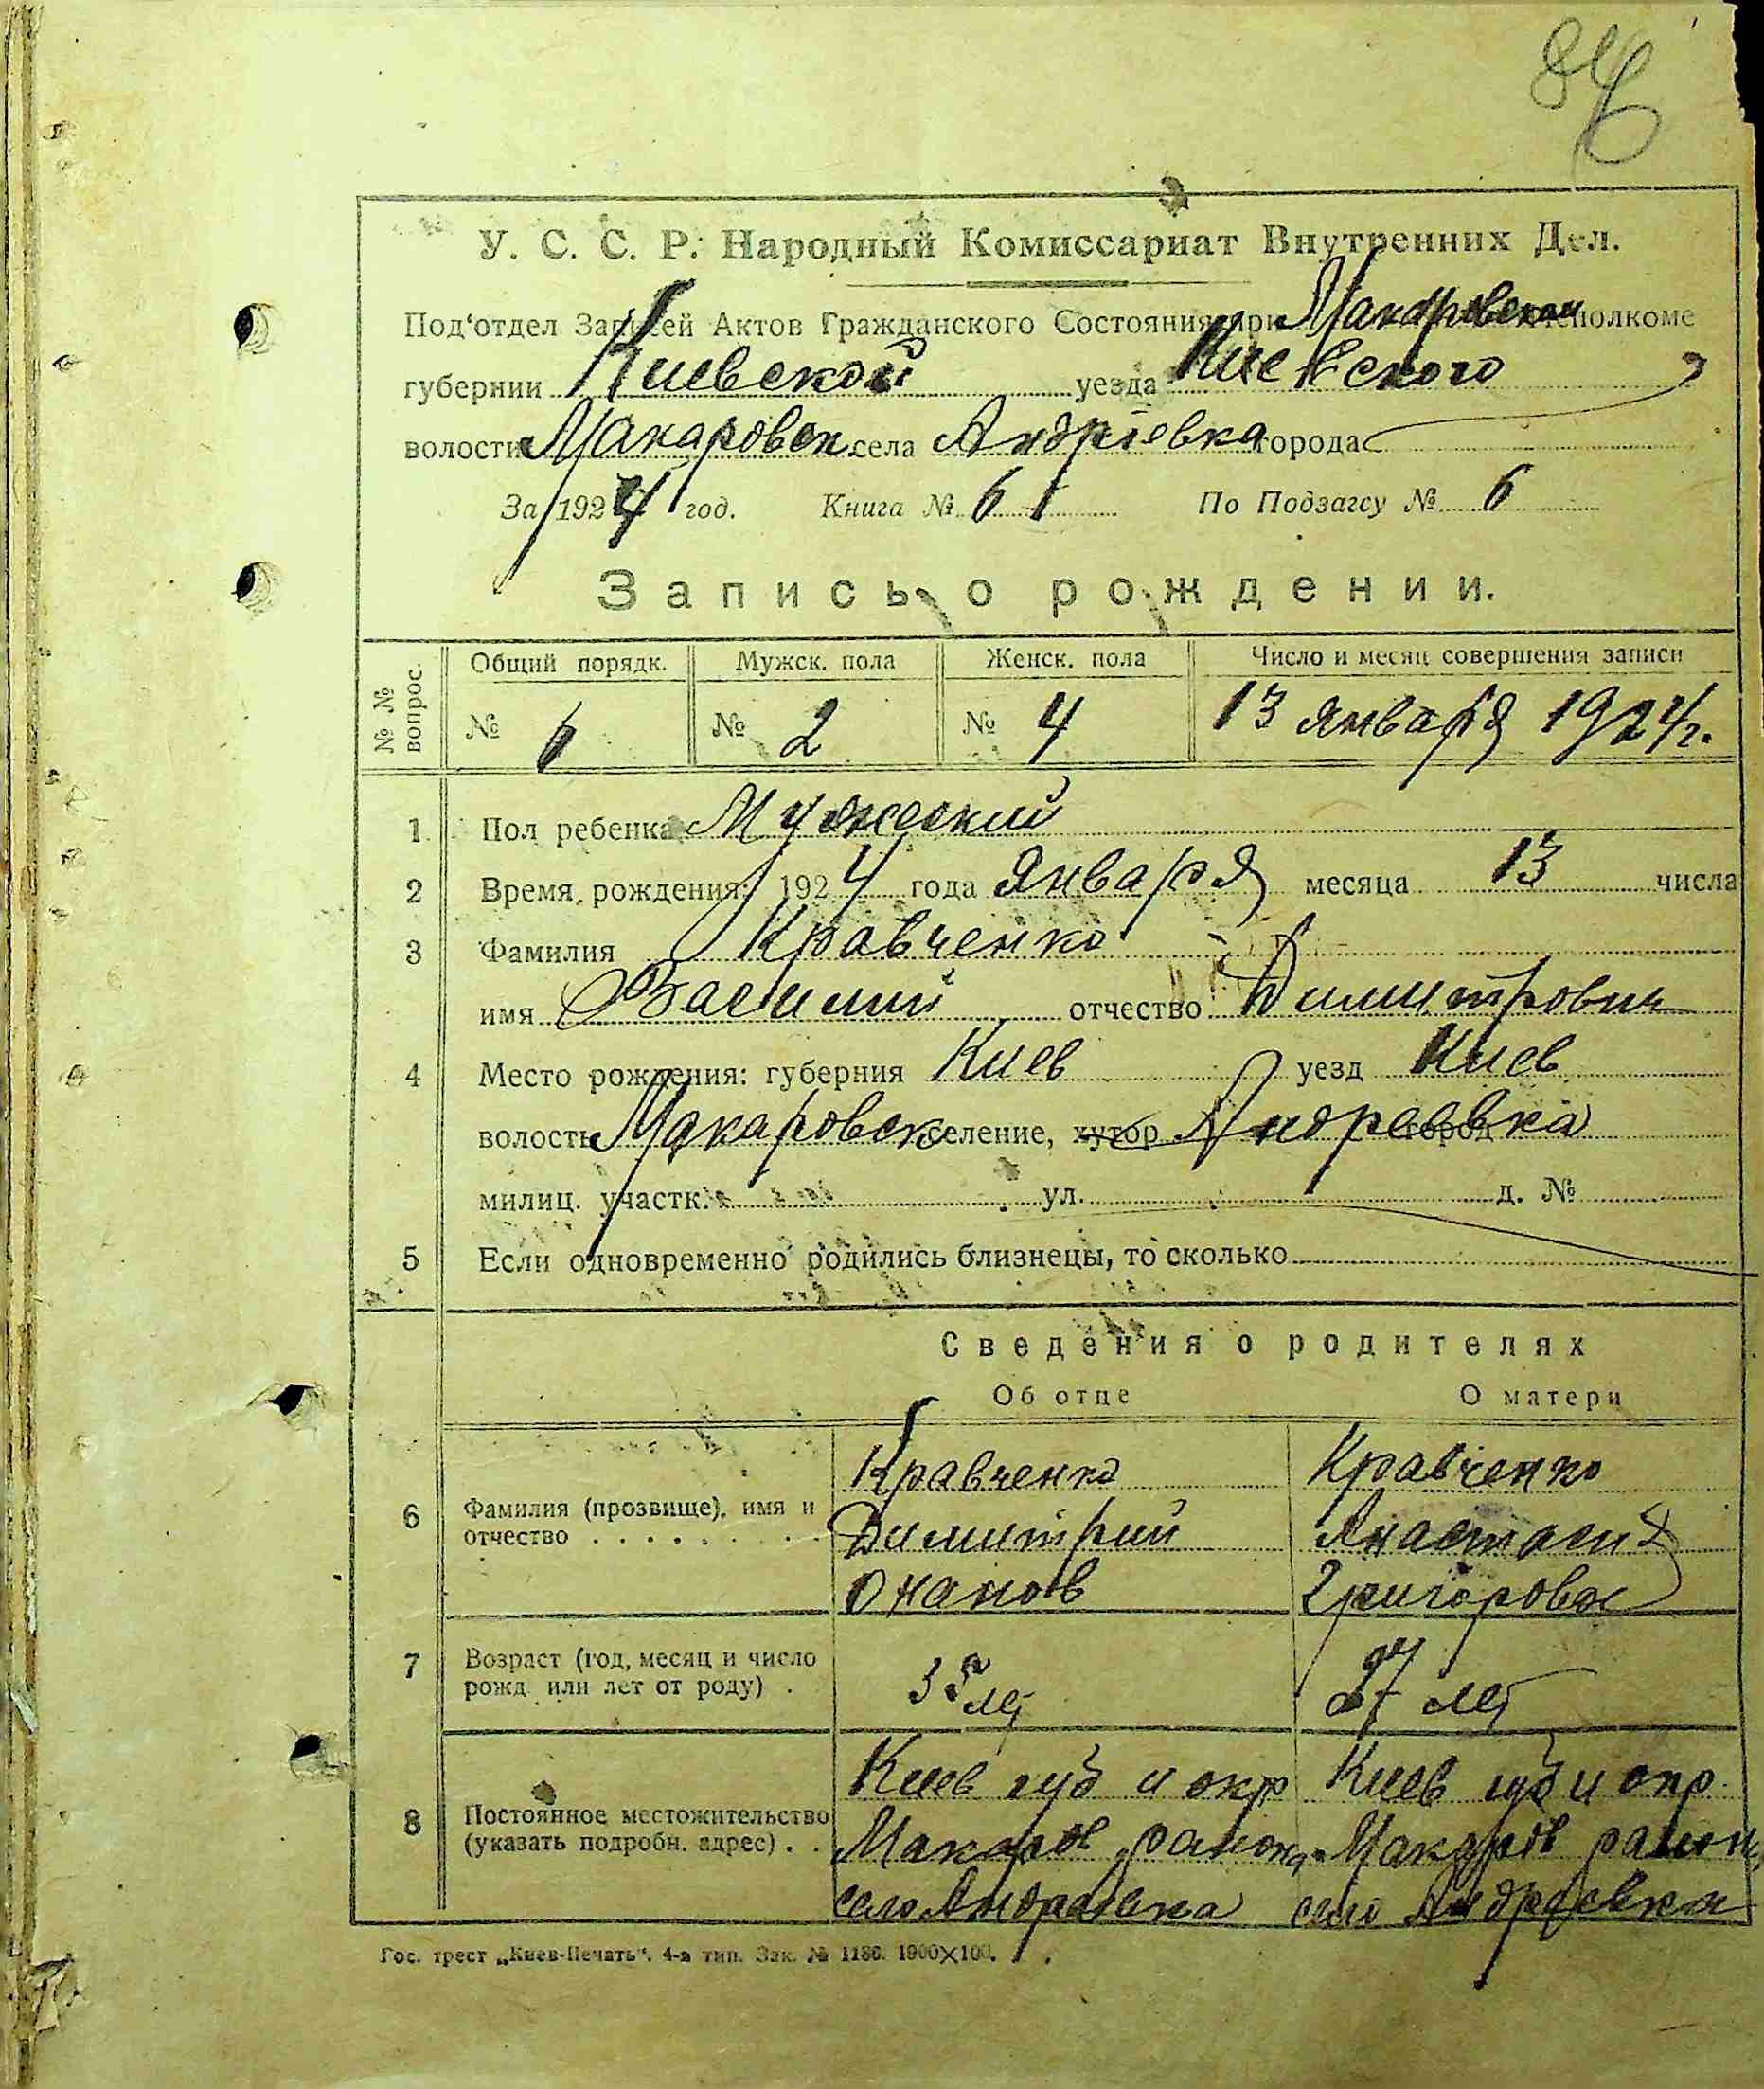 86
У. С. С. Р. Народный Комиссариат Внутренних Дел.
Под‘отдел Записей Актов Гражданского Состояния при Макаровском исполкоме
губернии Киевской уезда Киевского
волости Макаровск села Андріевка города
За 1924 год. Книга № 6 По Подзагсу № 6
Запись о рождении.
№ № вопрос. Общий порядк. Мужск. пола Женск. пола Число и месяц совершения записи
№ 6 № 2 № 4 13 января 1924 г.
1 Пол ребенка Мужеский
2 Время рождения: 1924 года января месяца 13 числа
3 Фамилия Кравченко
имя Василий отчество Димитрович
4 Место рождения: губерния Киев уезд Киев
волость Макаровск селение, хутор город Андреевка
милиц. участк. ул. д. №
5 Если одновременно родились близнецы, то сколько
Сведения о родителях
Об отце О матери
Кравченко Кравченко
6 Фамилия (прозвище), имя и отчество Димитрий Анастасия
Григоровн
7 Возраст (год, месяц и число рожд. или лет от роду) . 35 лет 27 лет
Киев губ и окр Киев губ и окр.
8 Постоянное местожительство (указать подробн. адрес) . . Макаров район Макаров район
село Андреевка село Андреевка
Гос. трест „Киев-Печать“. 4-а тип. Зак. № 1186. 1900×100.